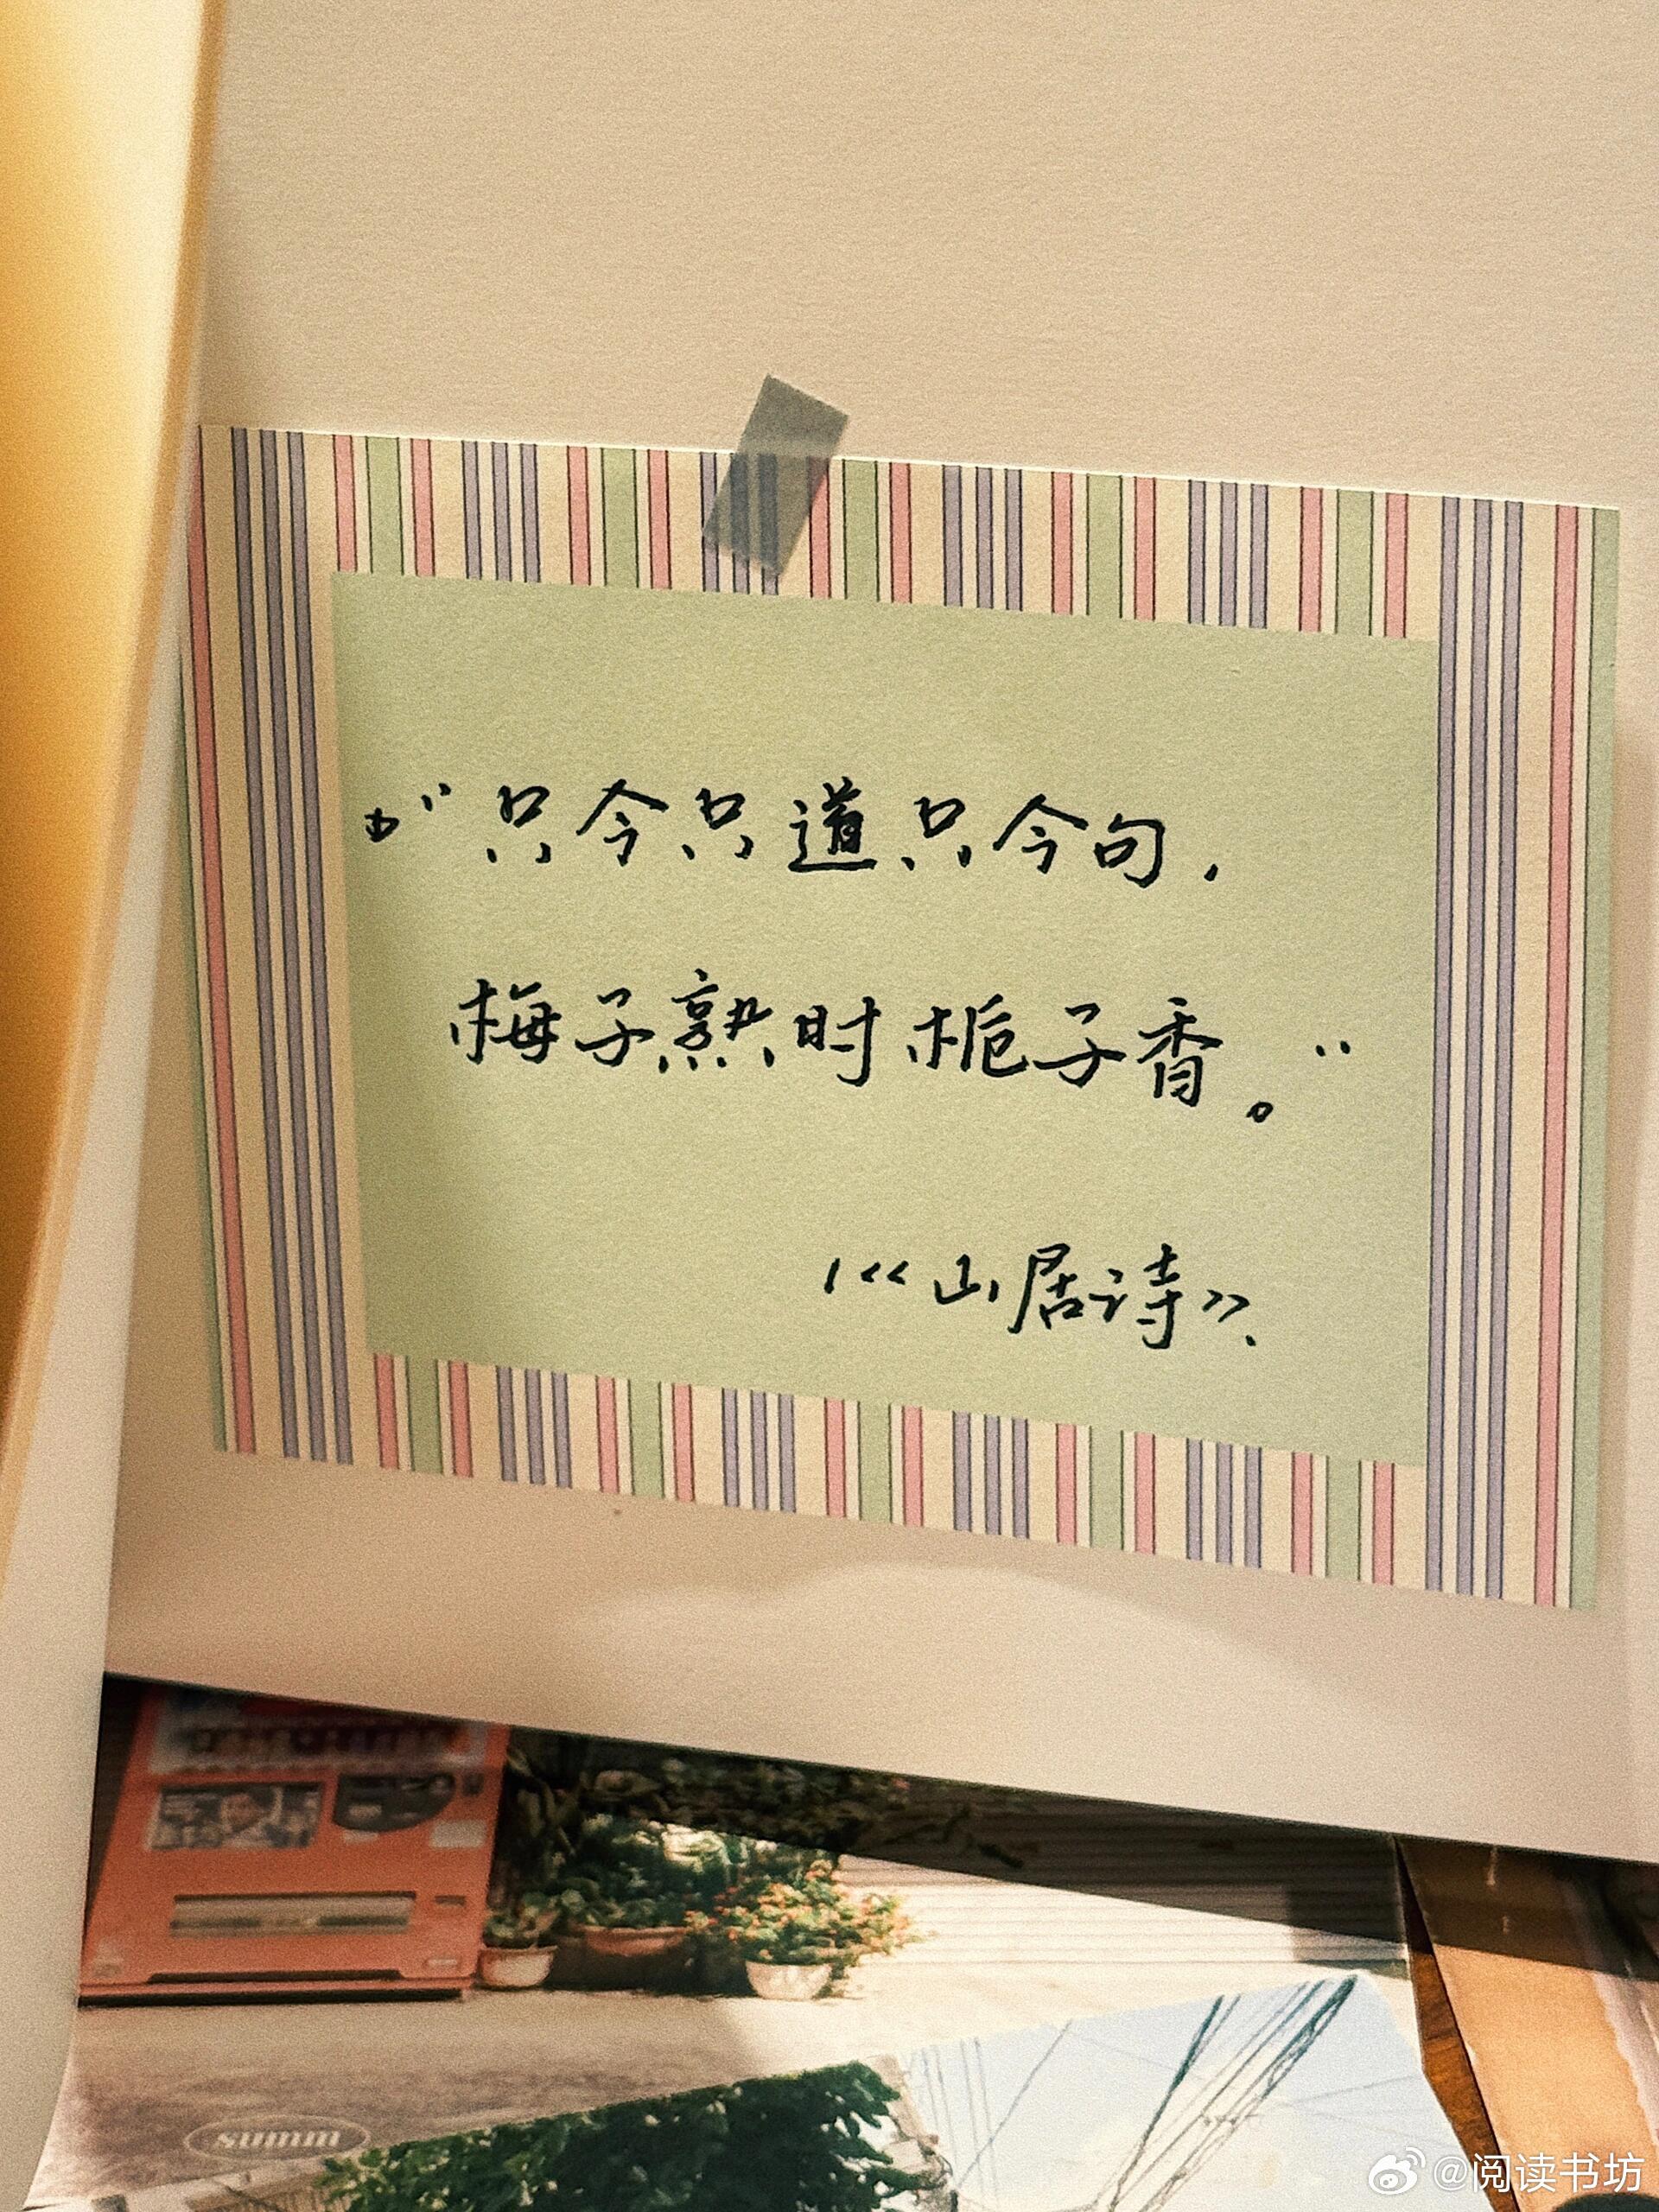 “只今只道只今句，
梅子熟时栀子香。”
《山居诗》
summ
@阅读书坊